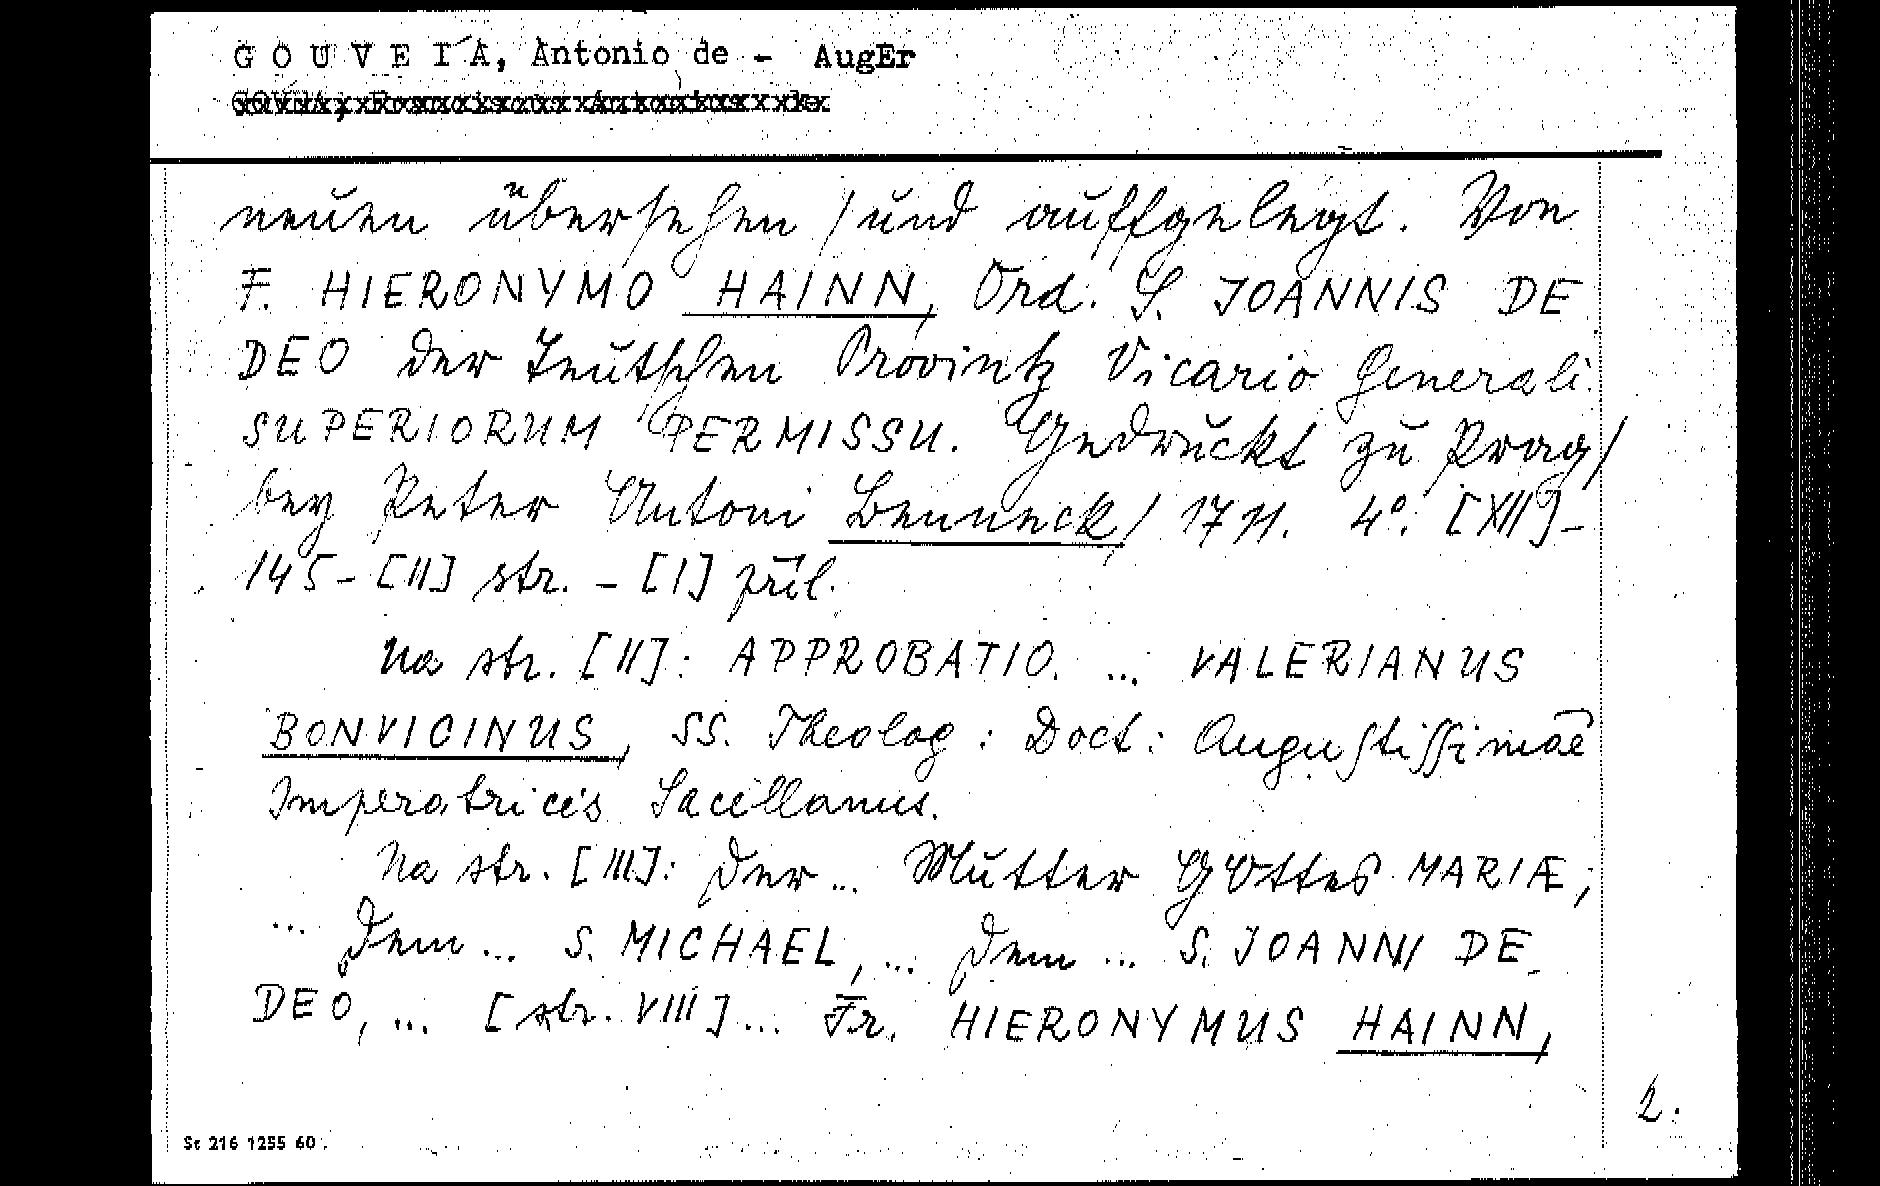 GOUVEIA, Antonio de - AugEr
neuen übersehen / und auffgelegt. Von
F. HIERONYMO HAINN, Ord. S. JOANNIS DE
DEO der Teutschen Provintz Vicario Generali.
SUPERIORUM PERMISSU. Gedruckt zu Prag /
bey Peter Antoni Benneck / 1711. 4°. [XII]-
145-[II] str. - [I] příl.
Na str. [II]: APPROBATIO. ... VALERIANUS
BONVICINUS, SS. Theolog: Doct: Augustissimae
Imperatricis Sacellanus.
Na str. [III]: Der ... Mutter GOttes MARIÆ,
... Dem ... S. MICHAEL, ... Dem ... S. JOANNI DE
DEO, ... [str. VIII] ... Fr. HIERONYMUS HAINN,
2.
St 216 1255 60.